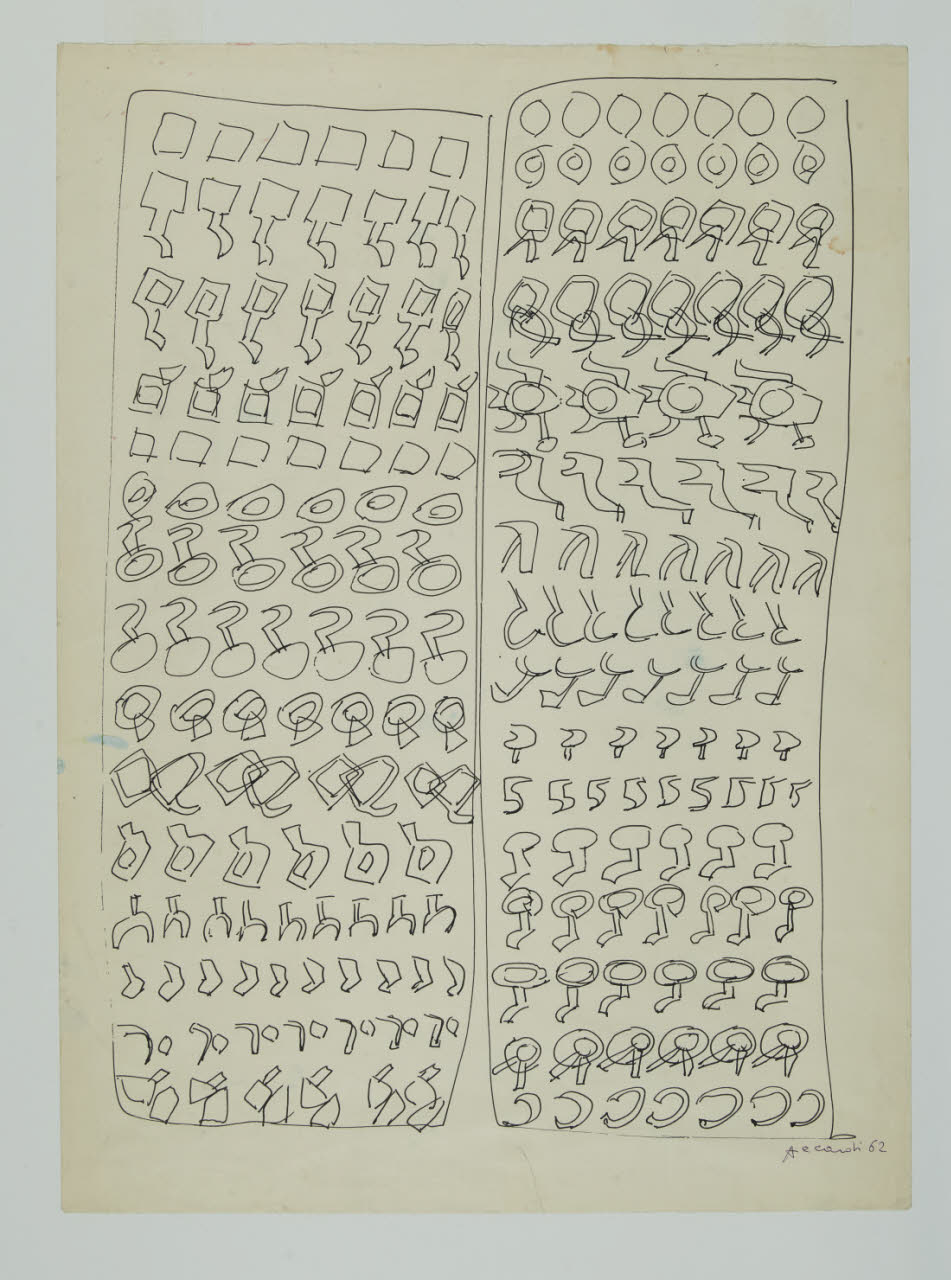 Accardi 62